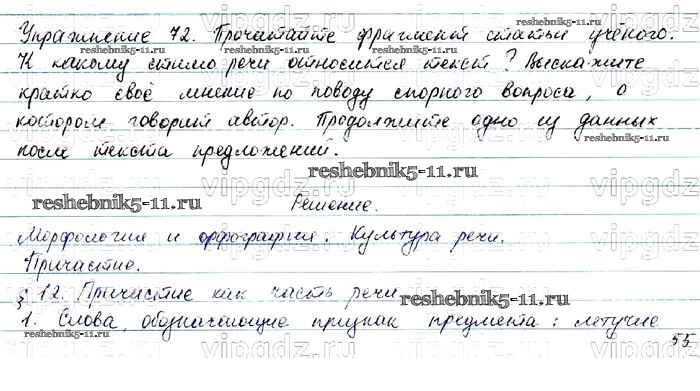 Упражнение 72. Прочитайте фрагмент статьи учёного.
reshebnik5-11.ru reshebnik5-11.ru
К какому стилю речи относится текст? Выскажите
кратко своё мнение по поводу спорного вопроса, о
котором говорит автор. Продолжите одно из данных
после текста предложений.
reshebnik5-11.ru
reshebnik5-11.ru Решение.
Морфология и орфография. Культура речи.
Причастие.
§ 12. Причастие как часть речи reshebnik5-11.ru
1. Слова, обозначающие признак предмета: летучие
55
vipgdz.ru